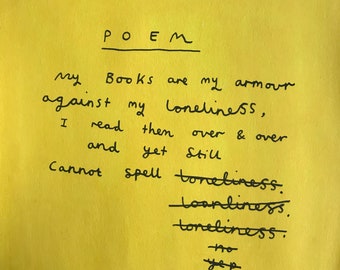 POEM
My Books are my armour
against my loneliness,
I read then over & over
and yet still
Cannot spell loneliness.
loanliness.
loneliness.
no
yep